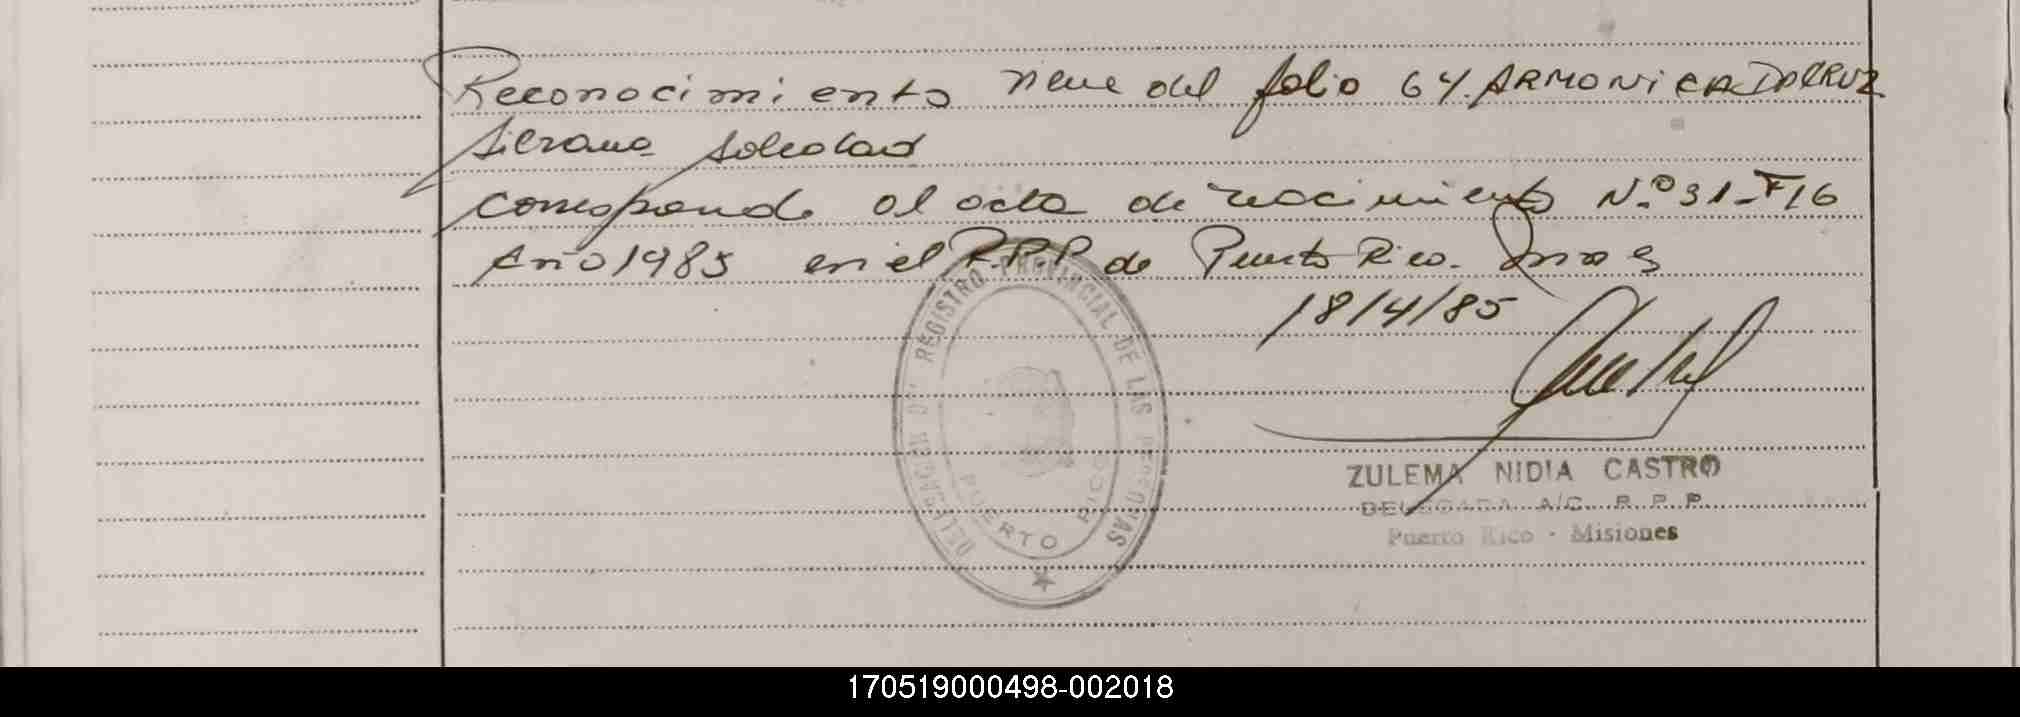 Reconocimiento viene del folio 64. ARMONICA DALCRUZ
Silvana Soledad
Corresponde al acta de nacimiento N.º 31-F 16
Año 1985 en el R.P.P de Puerto Rico. Mnes
18/4/85
DELEGACION REGISTRO PROVINCIAL DE LAS PERSONAS
PUERTO RICO
ZULEMA NIDIA CASTRO
DELEGADA A/C. R. P. P.
Puerto Rico - Misiones
170519000498-002018